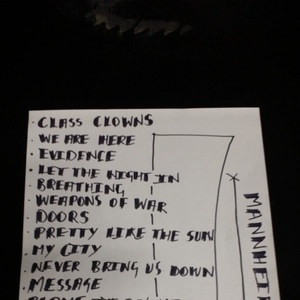 · CLASS CLOWNS
· WE ARE HERE
· EVIDENCE
· LET THE NIGHT IN
· BREATHING
· WEAPONS OF WAR
· DOORS
· PRETTY LIKE THE SUN
· MY CITY
· NEVER BRING US DOWN
· MESSAGE
MANNHEI